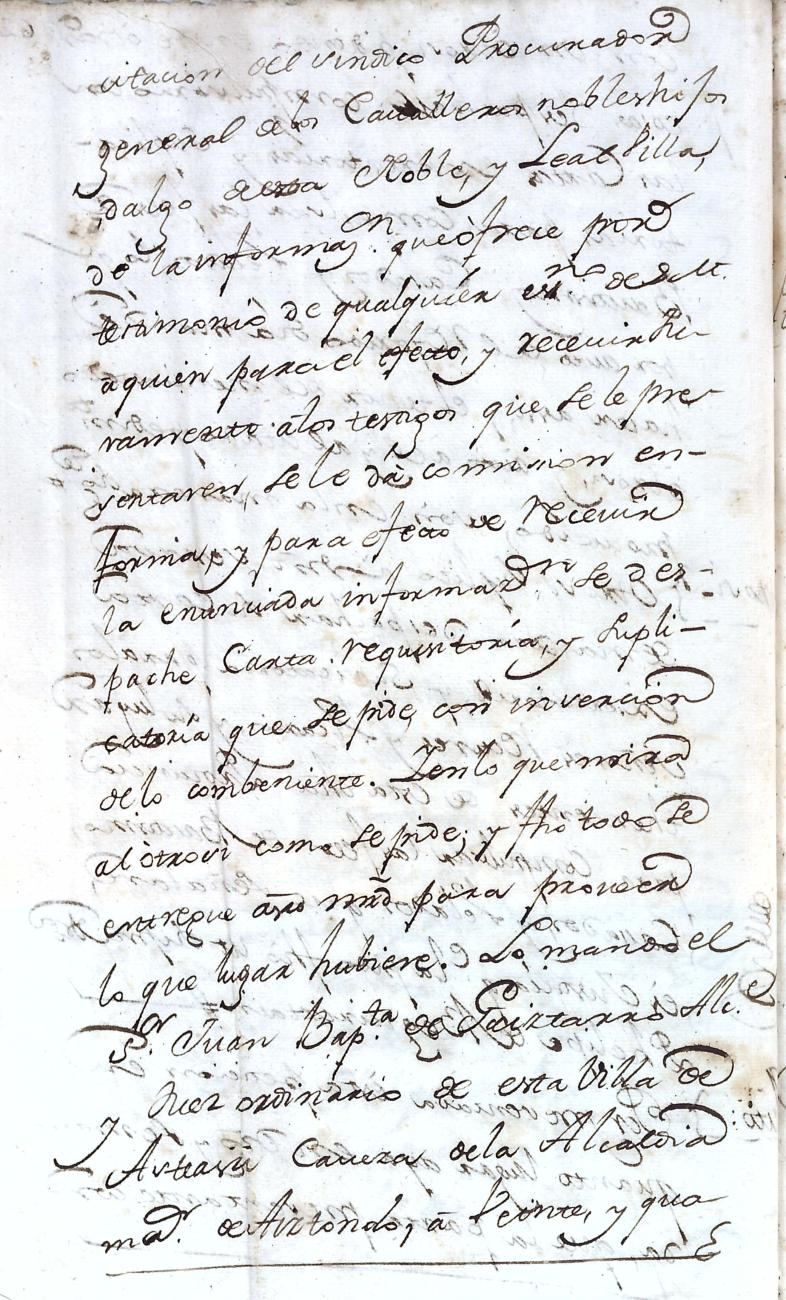 citacion del sindico Procurador
general de los Cavalleros nobles hijos
dalgo desta Noble, y Leal Villa,
de la informaz.on que ofrece por
testimonio de qualquier es.no de S. M.
a quien para el efecto, y recevir Ju-
ramento a los testigos que se le pre-
sentaren, se le dá comision en
forma, y para efecto de recevir
la enunciada informaz.on se des-
pache Carta requisitoria, y supli-
catoria que se pide, con insercion
de lo combeniente. Yen lo que mira
al otrosi como se pide; y fho todo se
entregue a su mrd para proveer
lo que lugar hubiere. Lo mandó el
S.or Juan Bap.ta de Alc.e
y Juez ordinario de esta Villa de
Asteasu Caveza de la Alcaldia
ma.r de Aiztondo, a Veinte, y qua-